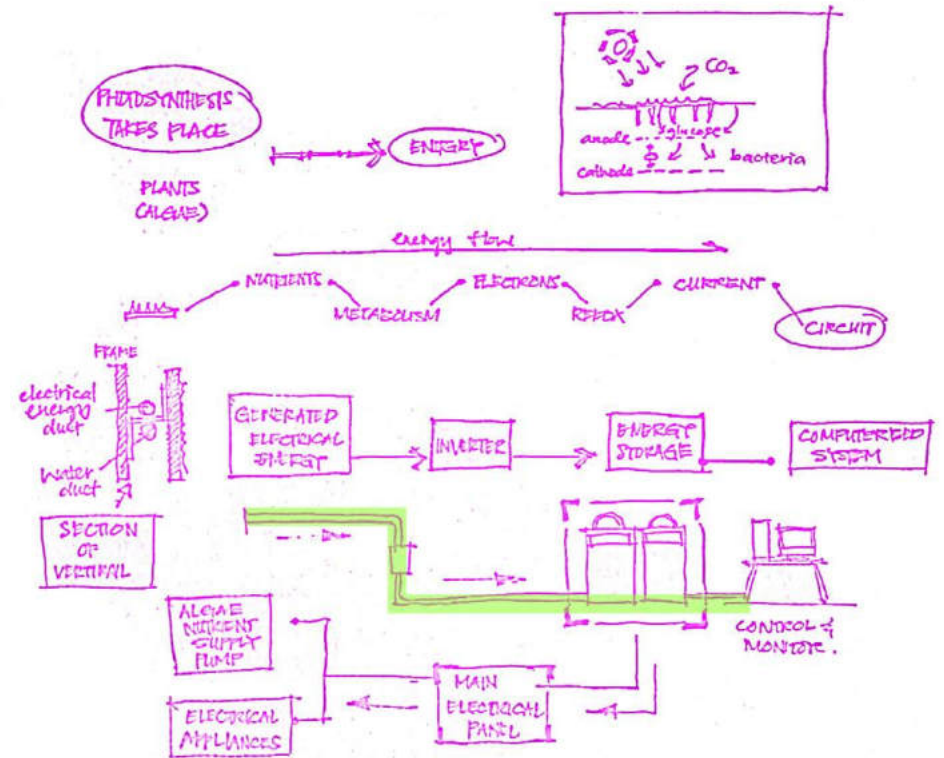 PHOTOSYNTHESIS
TAKES PLACE
PLANTS
(ALGAE)
ENERGY
CO2
glucose
anode
bacteria
cathode
energy flow
NUTRIENTS
METABOLISM
ELECTRONS
REDOX
CURRENT
CIRCUIT
FRAME
electrical
energy
duct
water
duct
SECTION
OF
VERTIRAIL
GENERATED
ELECTRICAL
ENERGY
INVERTER
ENERGY
STORAGE
COMPUTERED
SYSTEM
CONTROL &
MONITOR.
ALGAE
NUTRIENT
SUPPLY
PUMP
ELECTRICAL
APPLIANCES
MAIN
ELECTRICAL
PANEL